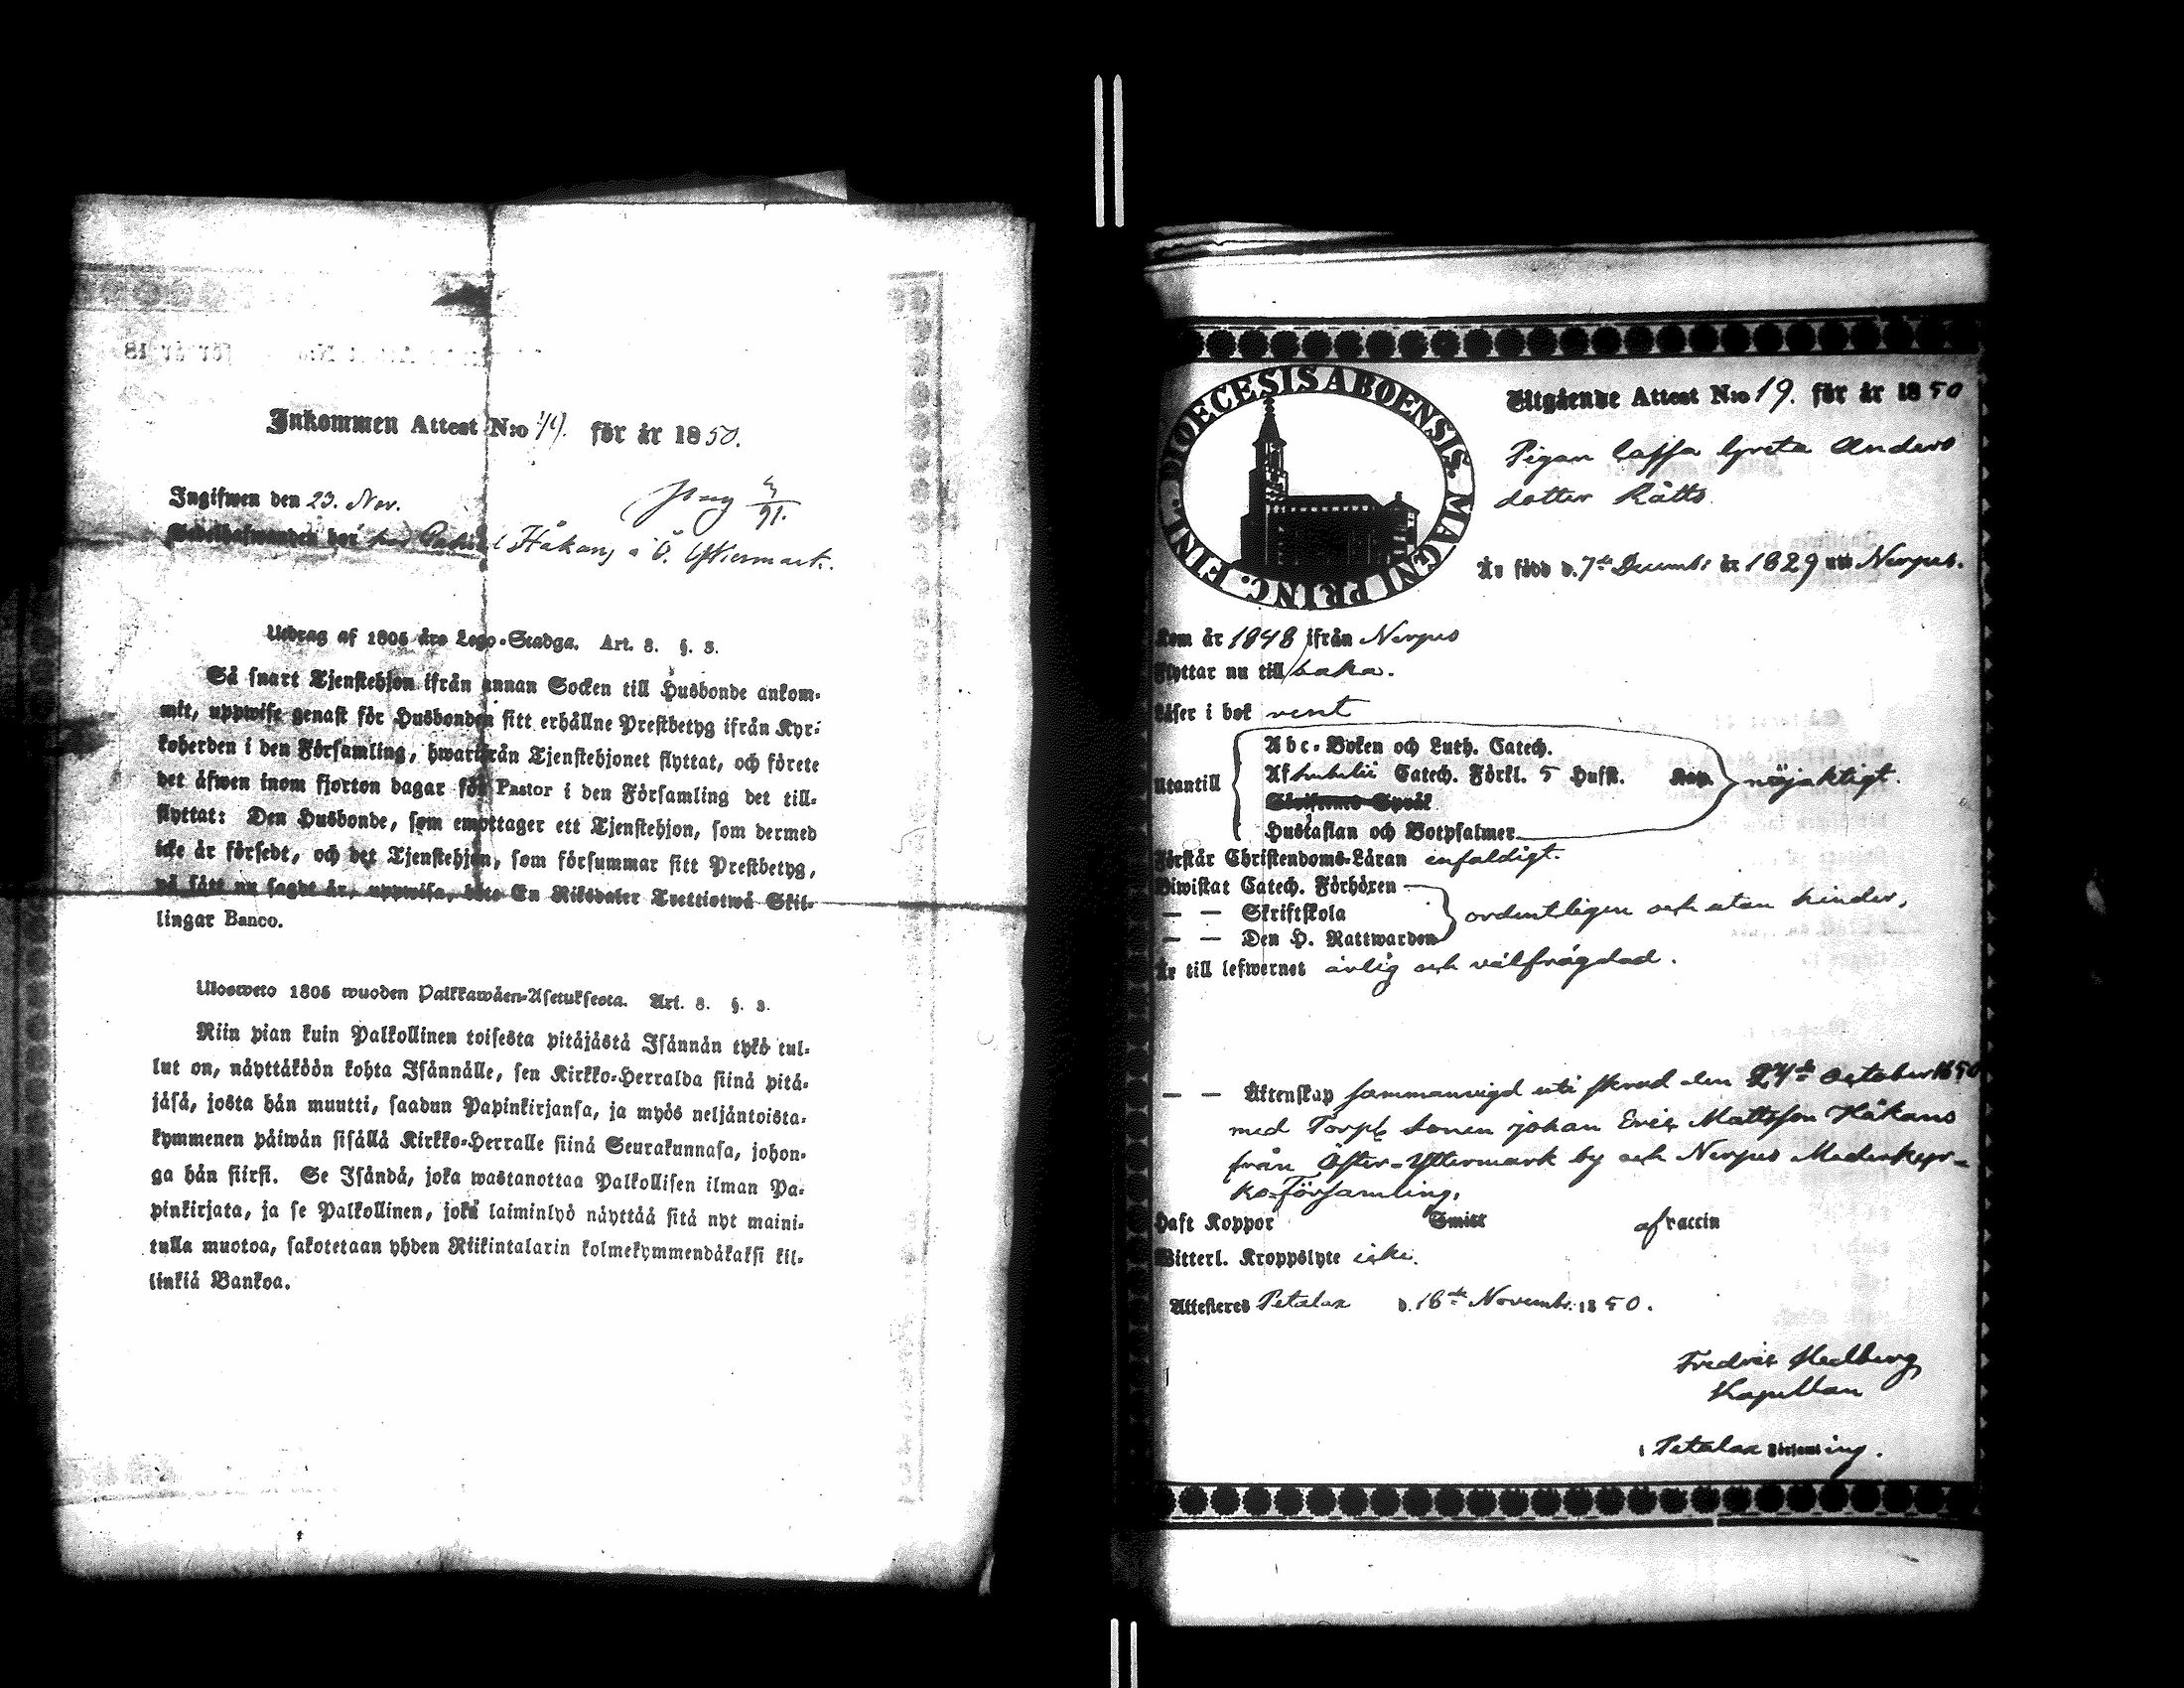 Inkommen Attest N:o 49. för år 1850.
Ingifwen den 23. Nov.
Håkans i Ö. Yttermark.
Utdrag af 1805 års Lego-Stadga. Art. 8. §. 3.
Så snart Tjenstehjon ifrån annan Socken till Husbonde ankom-
mit, uppwise genast för Husbonden sitt erhållne Prestbetyg ifrån Kyr-
koherden i den Församling, hwarifrån Tjenstehjonet flyttat, och förete
det äfwen inom fjorton dagar för Pastor i den Församling det till-
flyttat: Den Husbonde, som emottager ett Tjenstehjon, som dermed
icke är försedt, och det Tjenstehjon, som försummar sitt Prestbetyg,
på sätt nu sagdt är, uppwisa, böte En Riksdaler Trettiotwå Skil-
lingar Banco.
Ulosweto 1805 wuoden Palkkawäen-Asetuksesta. Art. 8. §. 3.
Niin pian kuin Palkollinen toisesta pitäjästä Isännän tykö tul-
lut on, näyttäköön kohta Isännälle, sen Kirkko-Herralda siinä pitä-
jäsä, josta hän muutti, saadun Papinkirjansa, ja myös neljäntoista-
kymmenen päiwän sisällä Kirkko-Herralle siinä Seurakunnasa, johon-
ga hän siirsi. Se Isändä, joka wastanottaa Palkollisen ilman Pa-
pinkirjata, ja se Palkollinen, joka laiminlyö näyttää sitä nyt maini-
tulla muotoa, sakotetaan yhden Riikintalarin kolmekymmendäkaksi kil-
linkiä Bankoa.
DIOECESIS ABOENSIS. MAGNI PRINC. FINL.
Utgående Attest N:o 19. för år 1850
Pigan Caissa Greta Anders
dotter Rätts.
Är född d. 7de Decemb: år 1829 uti Nerpes.
Kom år 1848 ifrån Nerpes
Flyttar nu till baka.
Läser i bok rent
Utantill
Abc-Boken och Luth. Catech.
Af Catech. Förkl. 5 Hufst. nöjaktigt.
Skriftens Språk
Hustaflan och Botpsalmer
Förstår Christendoms-Läran enfaldigt.
Biwistat Catech. Förhören
— — Skriftskola ordentligen och utan hinder,
— — Den H. Nattwarden
Är till lefwernet ärlig och välfrägdad.
— — Äktenskap sammanvigd uti den 27de October 1850
med Torp. sonen Johan Eric Mattsson Håkans
från Öfter-Yttermark by och Nerpes Moderkyr-
ko-församling.
Haft Koppor Smitt af vaccin
Witterl. Kroppslyte icke.
Attesteres Petalax d. 18de Novemb: 1850.
Fredric Hedberg
Kapellan
i Petalax Församling.